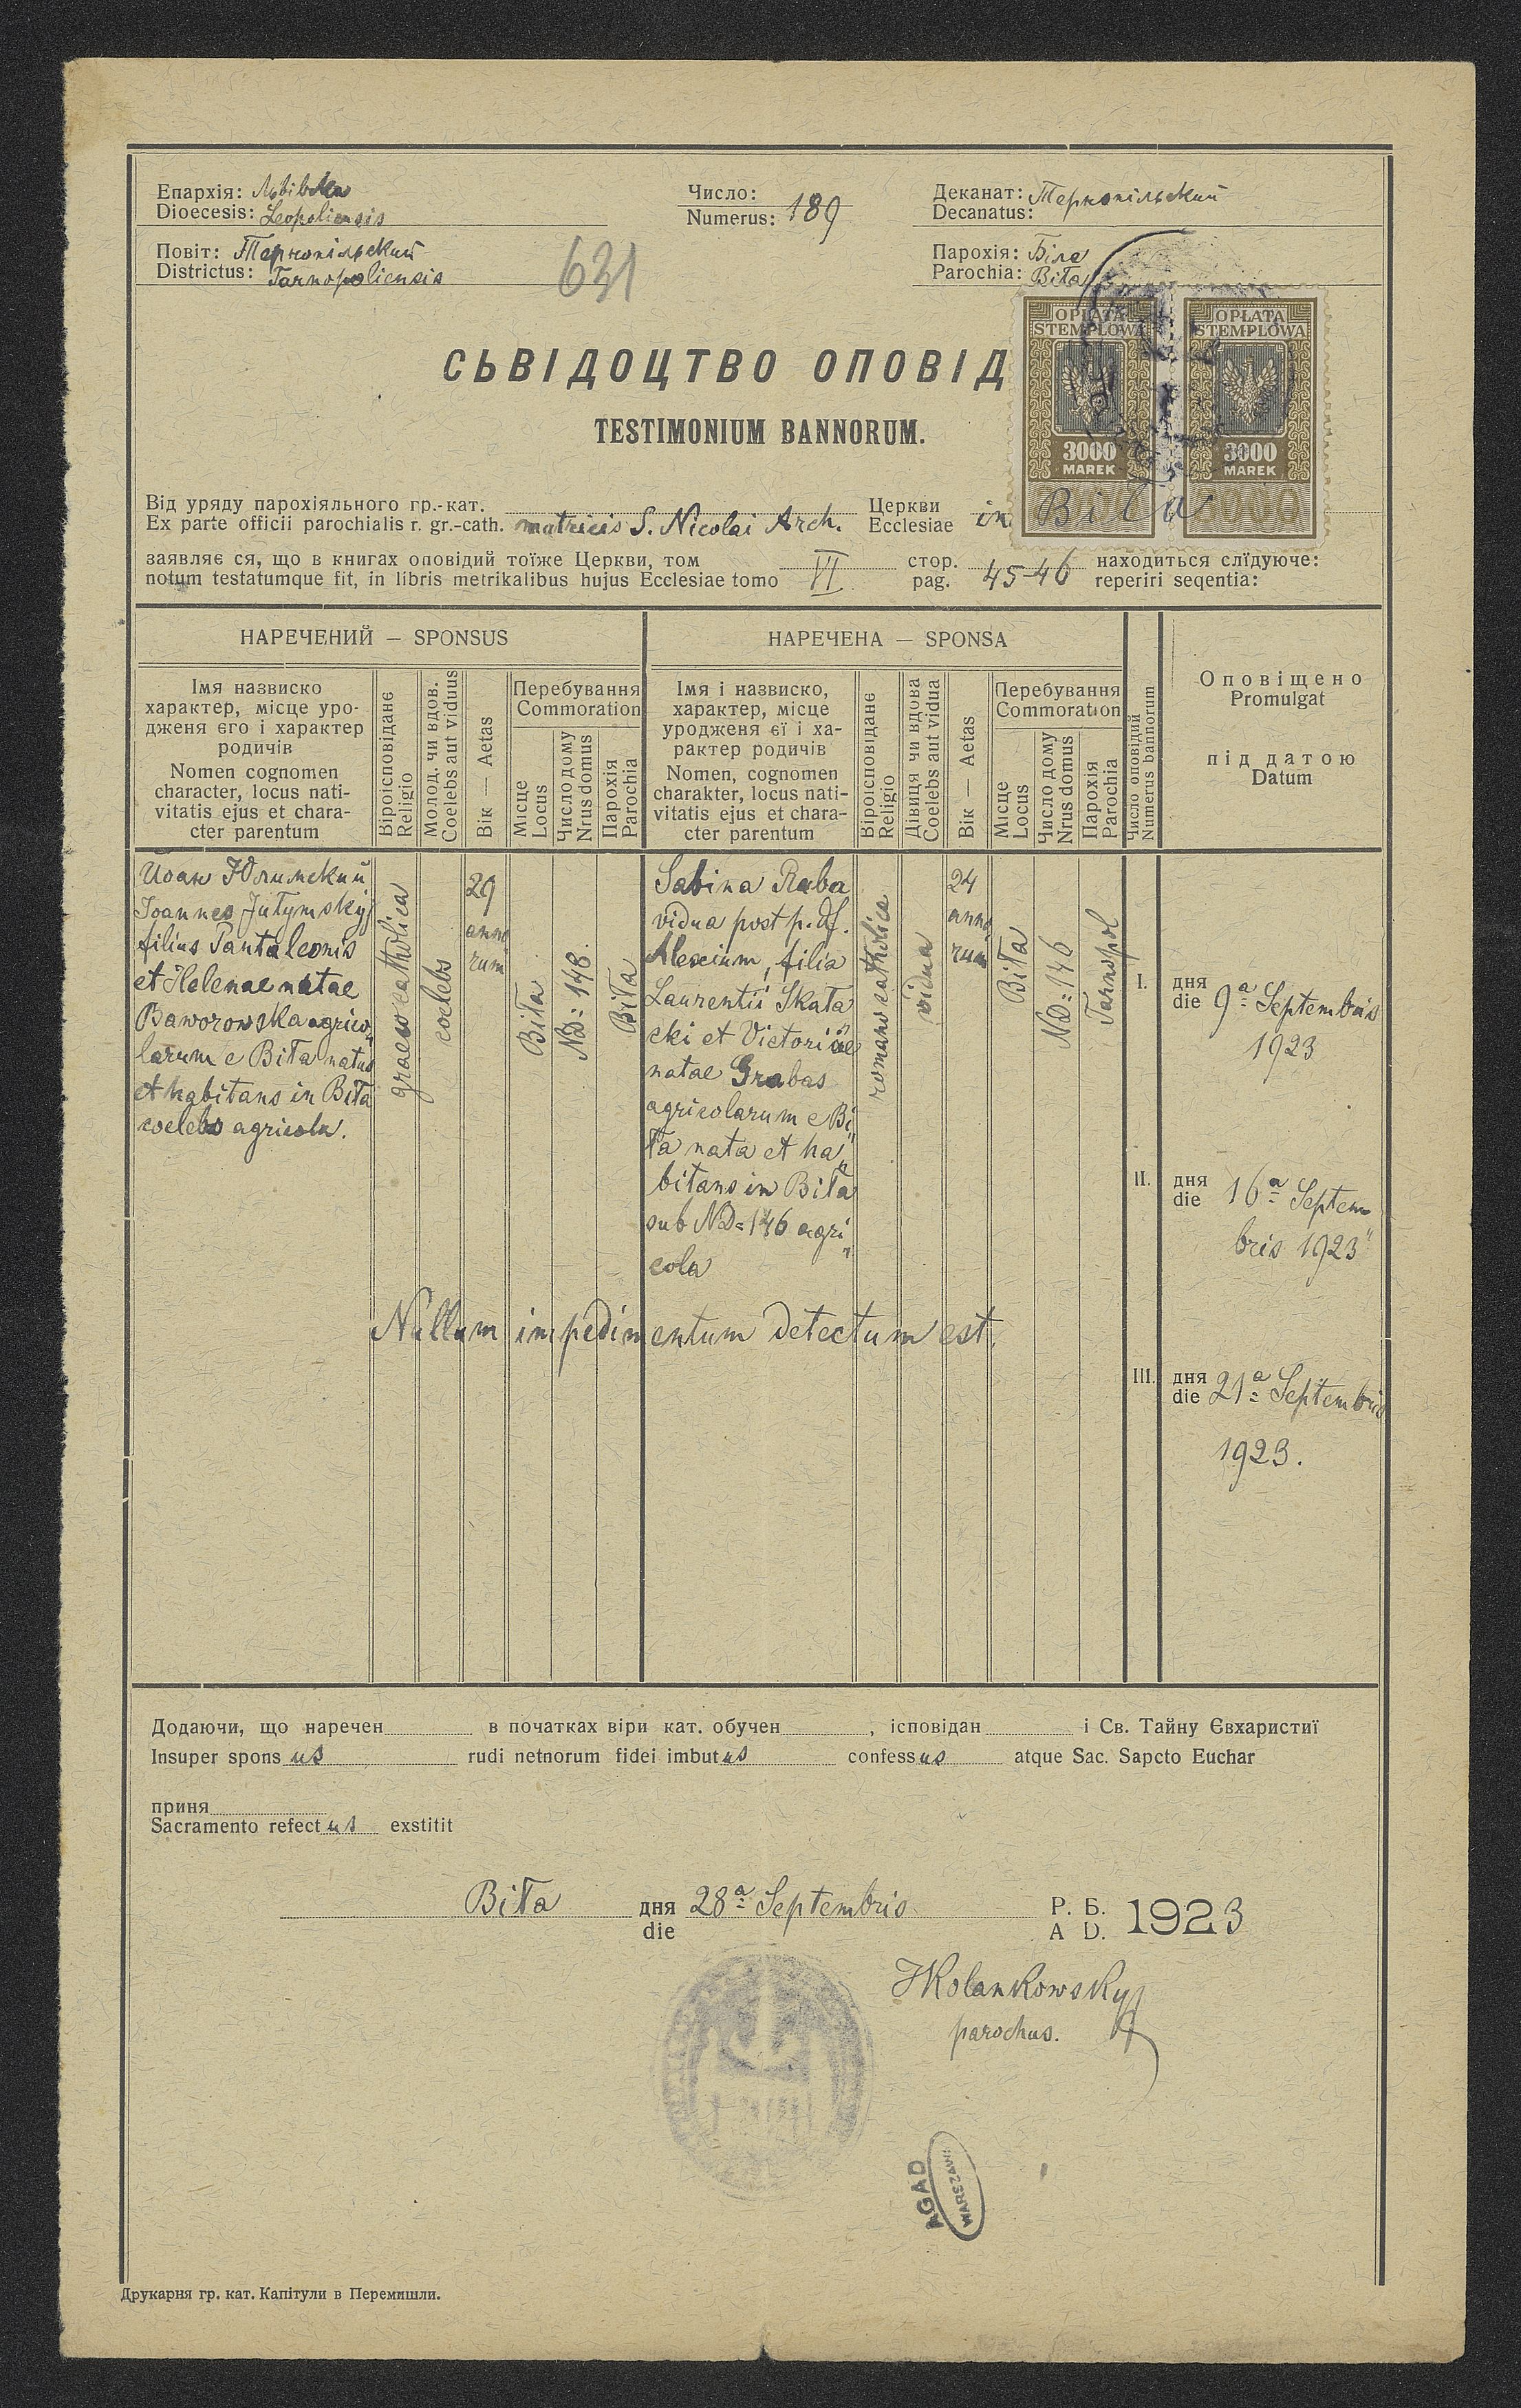 Епархія: Львівска
Dioecesis: Leopoliensis
Число:
Numerus: 189
Деканат: Тернопільский
Decanatus:
Повіт: Тернопільский
Districtus: Tarnopoliensis
631
Парохія: Біла
Parochia: Biła
OPŁATA STEMPLOWA
3000
MAREK
OPŁATA STEMPLOWA
3000
MAREK
СЬВІДОЦТВО ОПОВІД
TESTIMONIUM BANNORUM.
Від уряду парохіяльного гр.-кат. Церкви
Ex parte officii parochialis r. gr.-cath. matricis S. Nicolai Arch. Ecclesiae in Biła
заявляє ся, що в книгах оповідий тоїже Церкви, том стор. находиться слїдуюче:
notum testatumque fit, in libris metrikalibus hujus Ecclesiae tomo VI pag. 45-46 reperiri seqentia:
НАРЕЧЕНИЙ — SPONSUS
Імя назвиско
характер, місце уро-
дженя єго і характер
родичів
Nomen cognomen
character, locus nati-
vitatis ejus et chara-
cter parentum
Віроісповідане
Religio
Молод. чи вдов.
Coelebs aut viduus
Вік — Aetas
Перебування
Commoration
Місце
Locus
Число дому
Nrus domus
Парохія
Parochia
НАРЕЧЕНА — SPONSA
Імя і назвиско,
характер, місце
уродженя єї і ха-
рактер родичів
Nomen, cognomen
charakter, locus nati-
vitatis ejus et chara-
cter parentum
Віроісповідане
Religio
Дівиця чи вдова
Coelebs aut vidua
Вік — Aetas
Перебування
Commoration
Місце
Locus
Число дому
Nrus domus
Парохія
Parochia
Число оповідий
Numerus bannorum
Оповіщено
Promulgat
під датою
Datum
Йоан Юлимский
Joannes Jułymskyj
filius Pantaleonis
et Helenae natae
Baworowska agrico„
larum e Biła natus
et habitans in Biła
coelebs agricola.
graeco catholica
coelebs
29
anno
rum
Biła
ND: 148.
Biła
Sabina Raba
vidua post p. df.
Alexium, filia
Laurentii Skała
cki et Victoriae
natae Grabas
agricolarum e Bi„
ła nata et ha„
bitans in Biła
sub ND=146 agri„
cola
romano catholica
vidua
24
anno
rum
Biła
ND: 146
Tarnopol
I. дня
die 9a Septembris
1923
II. дня
die 16a Septem
bris 1923
Nullum impedimentum detectum est.
III. дня
die 21a Septembris
1923.
Додаючи, що наречен в початках віри кат. обучен , ісповідан і Св. Тайну Євхаристиї
Insuper spons us rudi netnorum fidei imbut us confess us atque Sac. Sapcto Euchar
приня
Sacramento refect us exstitit
Biła дня 28a Septembris Р. Б. 1923
die A D.
JKolankowskyj
parochus.
AGAD
WARSZAWA
Друкарня гр. кат. Капітули в Перемишли.